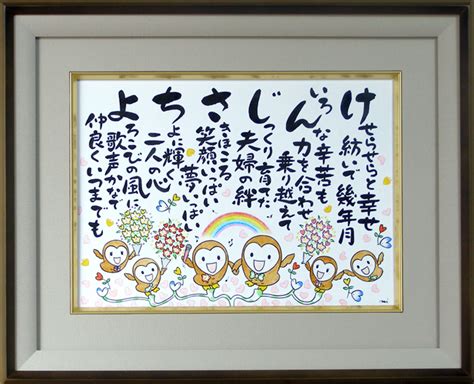 けせらせらと幸せ
紡いで幾年月
いろんな辛苦も
力を合わせ
乗り越えて
じっくり育てた
夫婦の絆
さきほころ
笑顔いっぱい
夢いっぱい
ちよに輝く
二人の心
よろこびの風に
歌声かなで
仲良くいつまでも